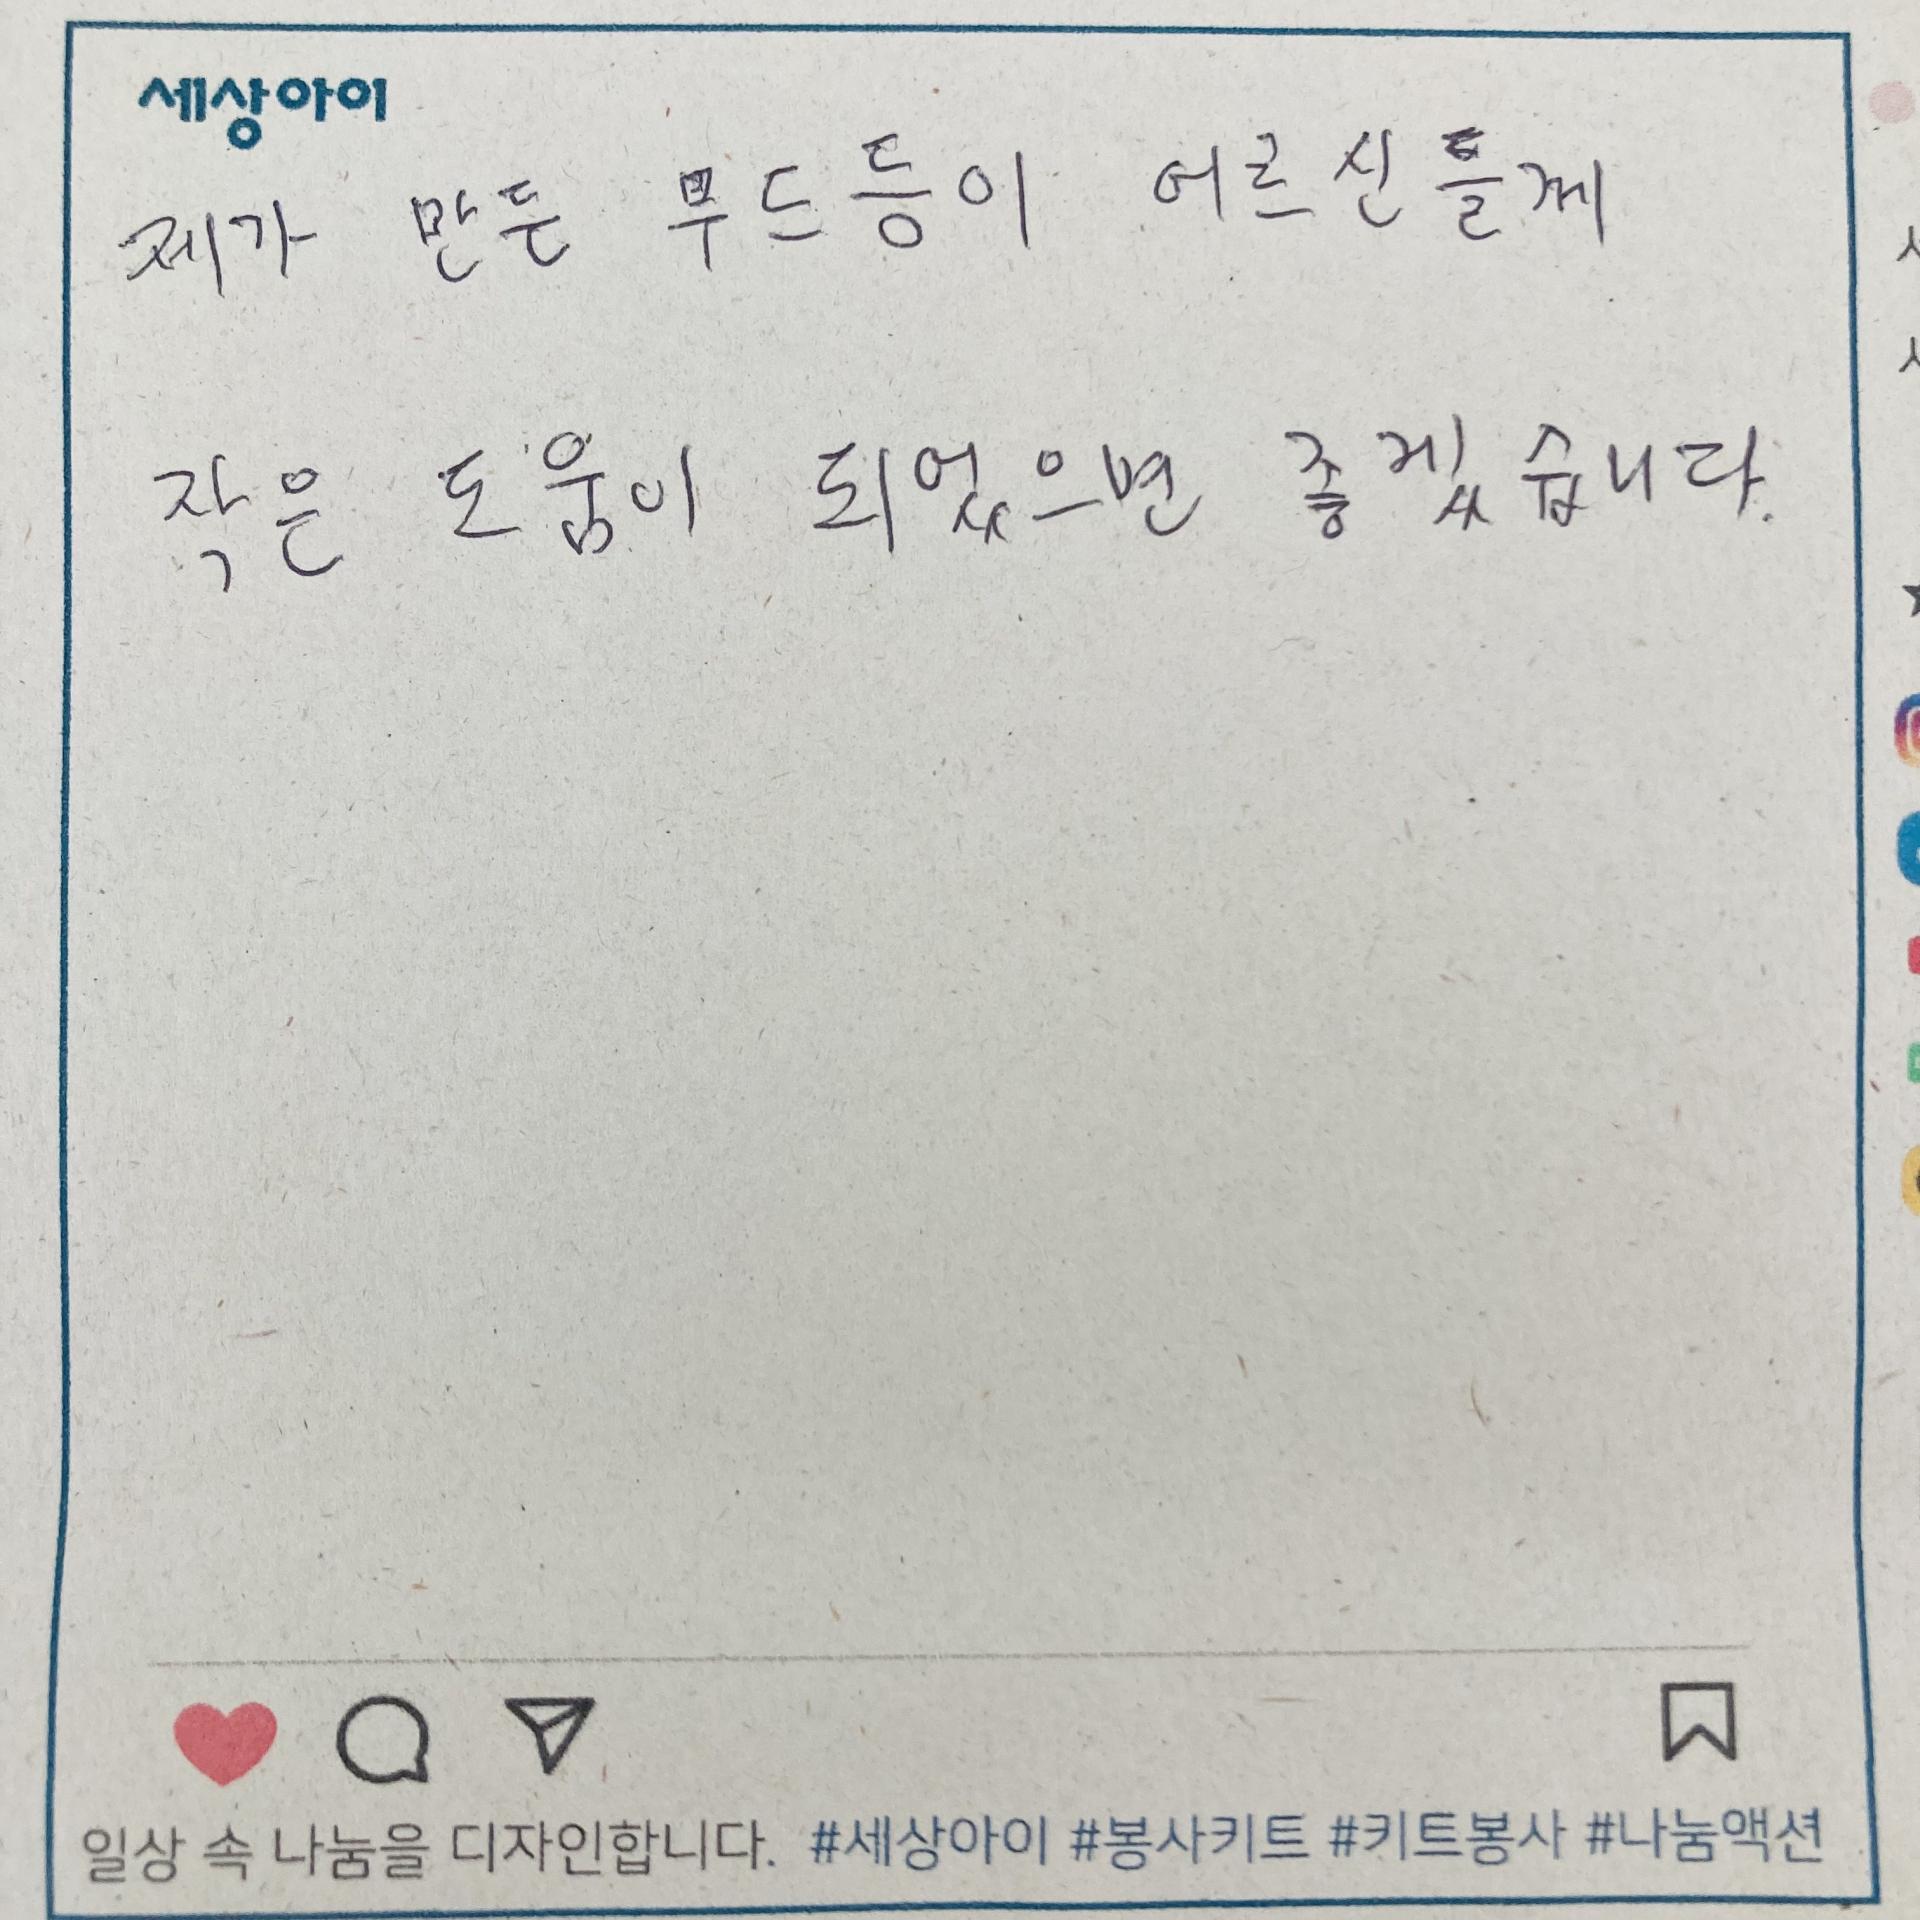 세상아이
제가 만든 무드등이 어르신들께
작은 도움이 되었으면 좋겠습니다.
일상 속 나눔을 디자인합니다. #세상아이 #봉사키트 #키트봉사 #나눔액션